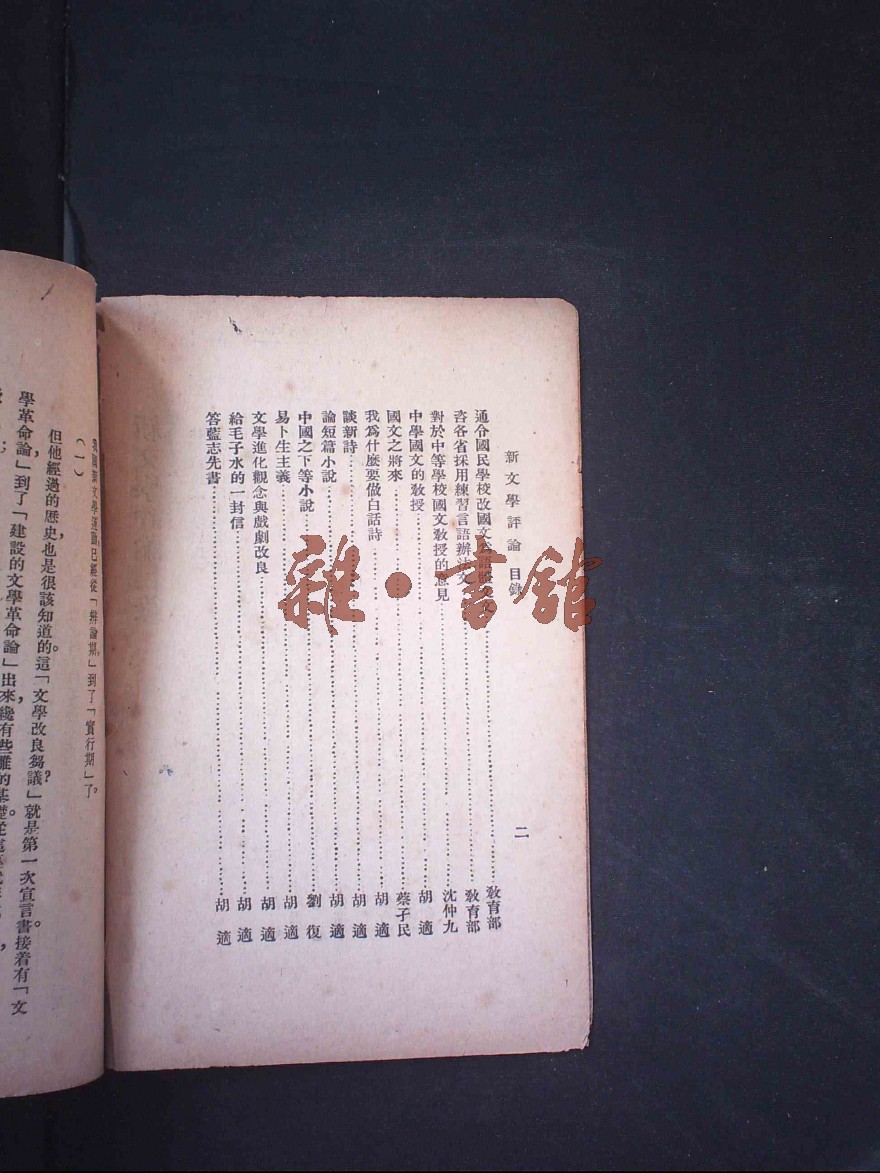 新文學評論 目錄
二
通令國民學校改國文 教育部
咨各省採用練習言語辦法文 教育部
對於中等學校國文教授的意見 沈仲九
中學國文的教授 胡適
國文之將來 蔡孑民
我爲什麼要做白話詩 胡適
談新詩 胡適
論短篇小說 胡適
中國之下等小說 劉復
易卜生主義 胡適
文學進化觀念與戲劇改良 胡適
給毛子水的一封信 胡適
答藍志先書 胡適
雜·書館
(一)
文學運動,已經從「辯論期」到了「實行期」了。
但他經過的歷史,也是很該知道的。這「文學改良芻議」就是第一次宣言書。接着有「文
學革命論」到了「建設的文學革命論」出來,纔有些